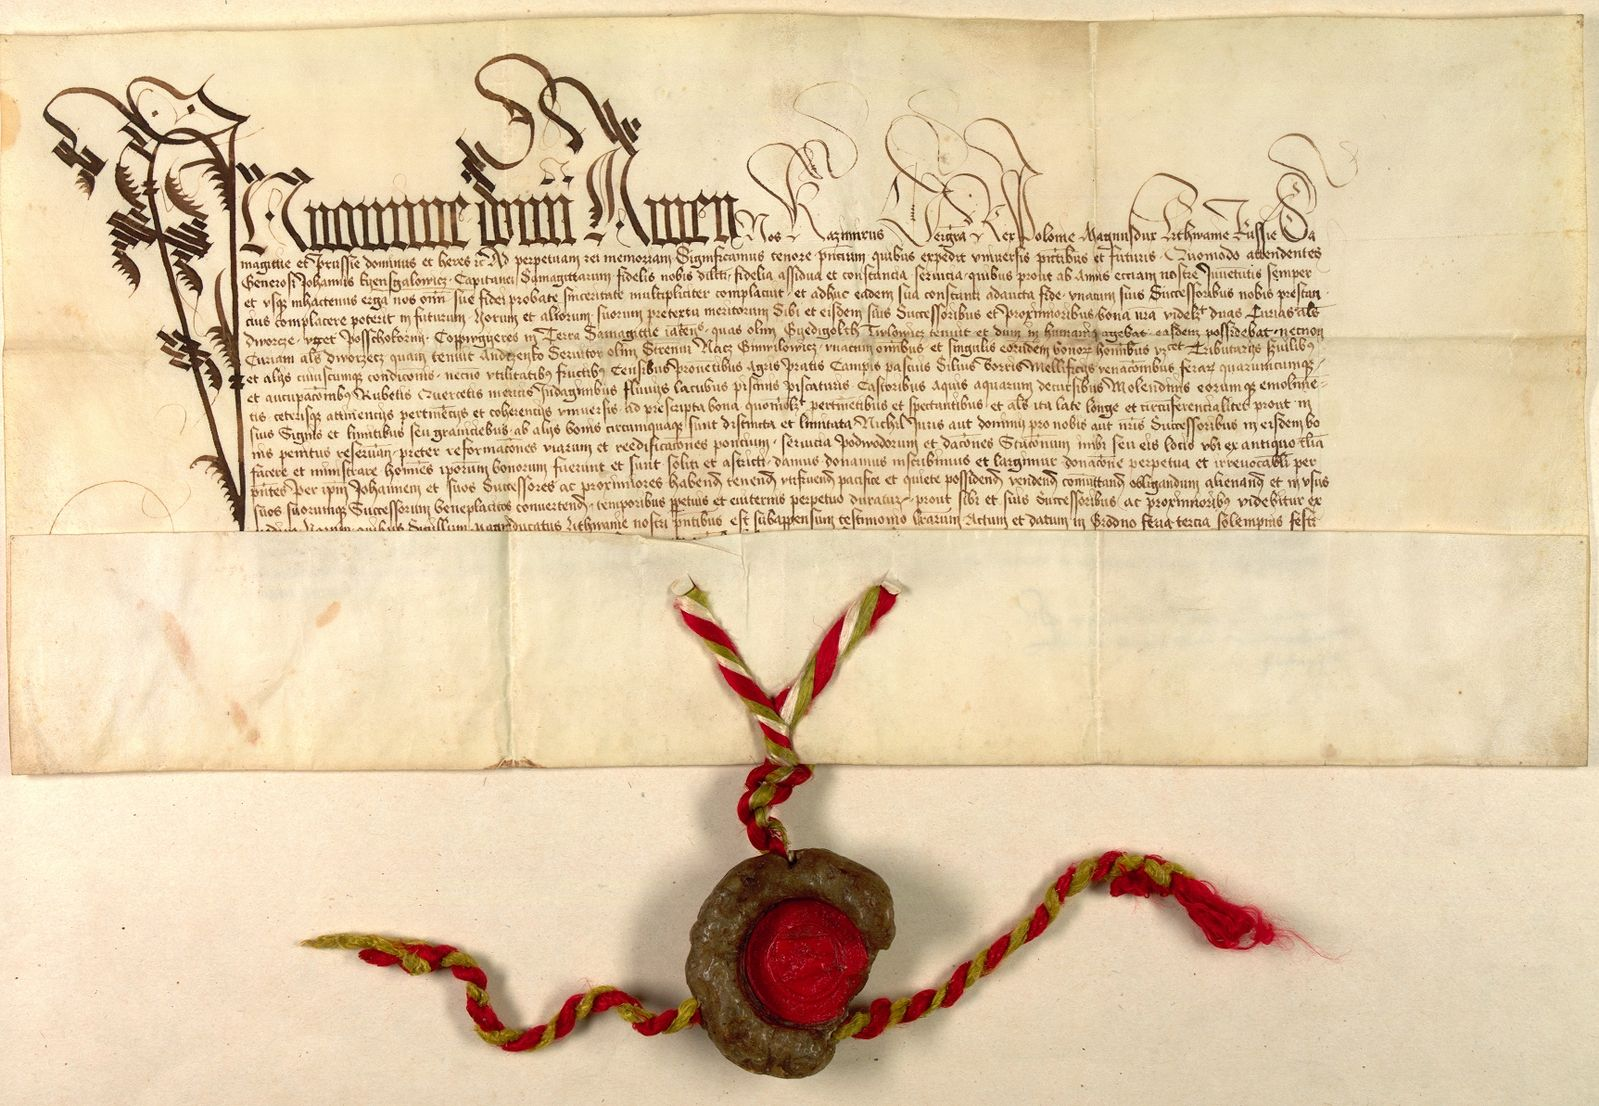 In nomine domini Amen Nos Kazimirus Dei gra Rex Polonie Magnusdux Lithwanie Russie Sa
magittie et Prussie dominus et heres ec Ad perpetuam rei memoriam Significamus tenore pntium quibus expedit vniuersis pntibus et futuris Quomodo attendentes
Generosi Johannis Capitanei Samagittarum fidelis nobis dilcti fidelia assidua et constancia seruicia quibus prout ab Annis ecciam nostre Juuetutis semper
et vsq inhactenus erga nos omi sue fidei probate sinceritate multipliciter complacuit et adhuc eadem sua constanti adaucta fide vnacum suis Successoribus nobis prestan
cius complacere poterit in futurum Horum et aliorum suorum pretextu meritorum Sibi et eisdem suis Successoribus et Proximioribus bona nra videlzt duas Curias als
dworcze vzcet in Terra Samagittie iacens quas olim tenuit et dum in humanis agebat easdem possidebat necnon
Curiam als dworzecz quam tenuit Andruschko Seruitor olim Strenui vnacum omibus et singulis eorundem bonorz homibus vzcet Tributariys Seruilibus
et alys cuiuscumque condicionis necno vtilitatibus fructibus Censibus prouetibus Agris Pratis Campis pascuis Siluis Borris Mellificys venacoibus ferarz quarumcumque
et aucupacoibus Rubetis Quercetis mericis Indaginibus fluuys lacubus piscinis piscaturis Castoribus Aquis aquarum decursibus Molendinis eorumque emolime=
tis ceterisque attinencys pertinecys et coherencys vniuersis ad prescripta bona quomolzt pertinetibus et spectantibus et als ita late longe et circumferencialiter prout in
suis Signis et limitibus seu graniciebus ab alys bonis circumquaque sunt distincta et limitata Nichil Iuris aut dominy pro nobis aut nris Successoribus in eisdem bo
nis penitus reseruan preter reformacoes viarum et reedificacoes poncium seruicia Podwodorum et dacoes Stacionum inibi seu eis locis vbi ex antiquo
facere et ministrare homines iporum bonorum fuerunt et sunt soliti et astricti damus donamus inscribimus et largimur donacoe perpetua et irreuocabili per
pntes per ipm Johannem et suos Successores ac proximiores habend tenend vtifruend pacifice et quiete possidend vendend comutand obligandum alienand et in vsus
suos suorumque Successorum beneplacitos conuertend temporibus ppetuis et euiternis perpetuo duratur prout sibi et suis Successoribus ac proximioribus videbitur ex
Sigillum Magniducatus Lithwanie nostri pntibus est subappensum testimonio lrarum Actum et datum in Grodno feria tercia solempnis festi